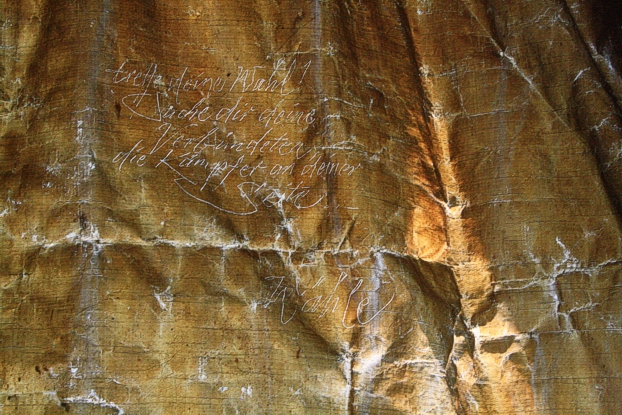 treffe deine Wahl!
Suche dir deine
Verbündeten
die Kämpfer an deiner
Seite
Wähle